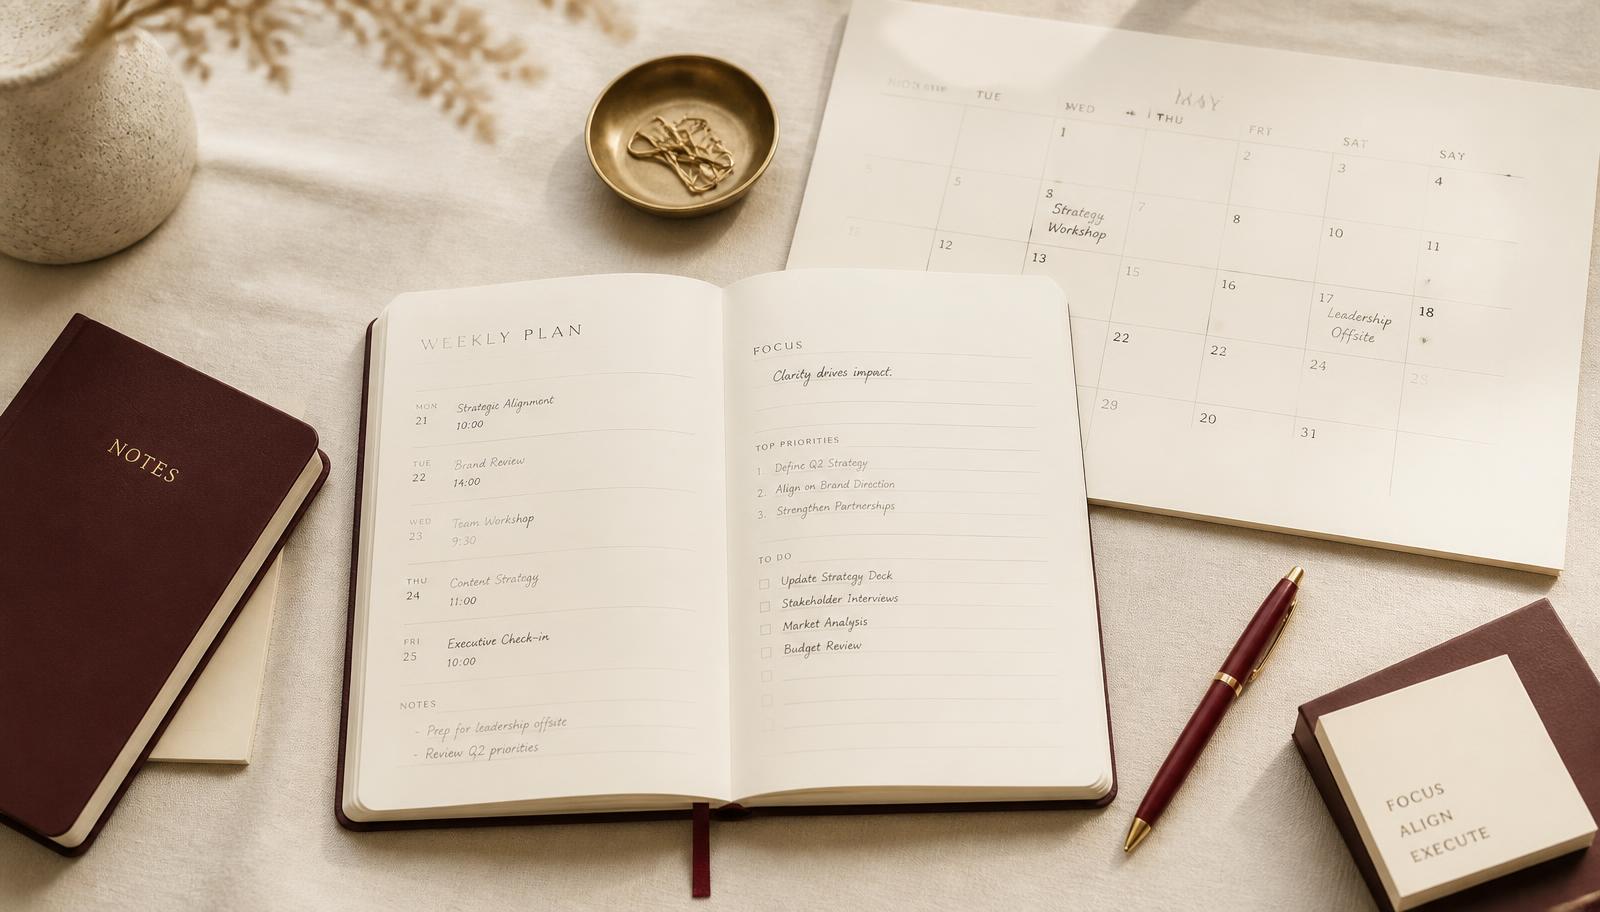 NOTES
WEEKLY PLAN
MON
21
Strategic Alignmont
10:00
TUE
22
Brand Review
14:00
WED
23
Team Workshop
9:30
THU
24
Content Strategy
11:00
FRI
25
Executive Check-in
10:00
NOTES
- Prep for leadership offsite
- Review Q2 priorities
FOCUS
Clarity drives impact.
TOP PRIORITIES
1. Define Q2 Strategy
2. Align on Brand Direction
3. Strengthen Partnerships
TO DO
Update Strategy Deck
Stakeholder Interviews
Market Analysis
Budget Review
MAY
TUE WED THU FRI SAT SAY
1 2 3 4
5 7 8 10 11
Strategy
Workshop
12 13 15 16 17 18
Leadership
Offsite
22 22 24
29 20 31
FOCUS
ALIGN
EXECUTE